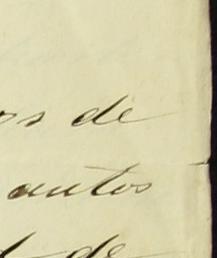 os de
autos
de